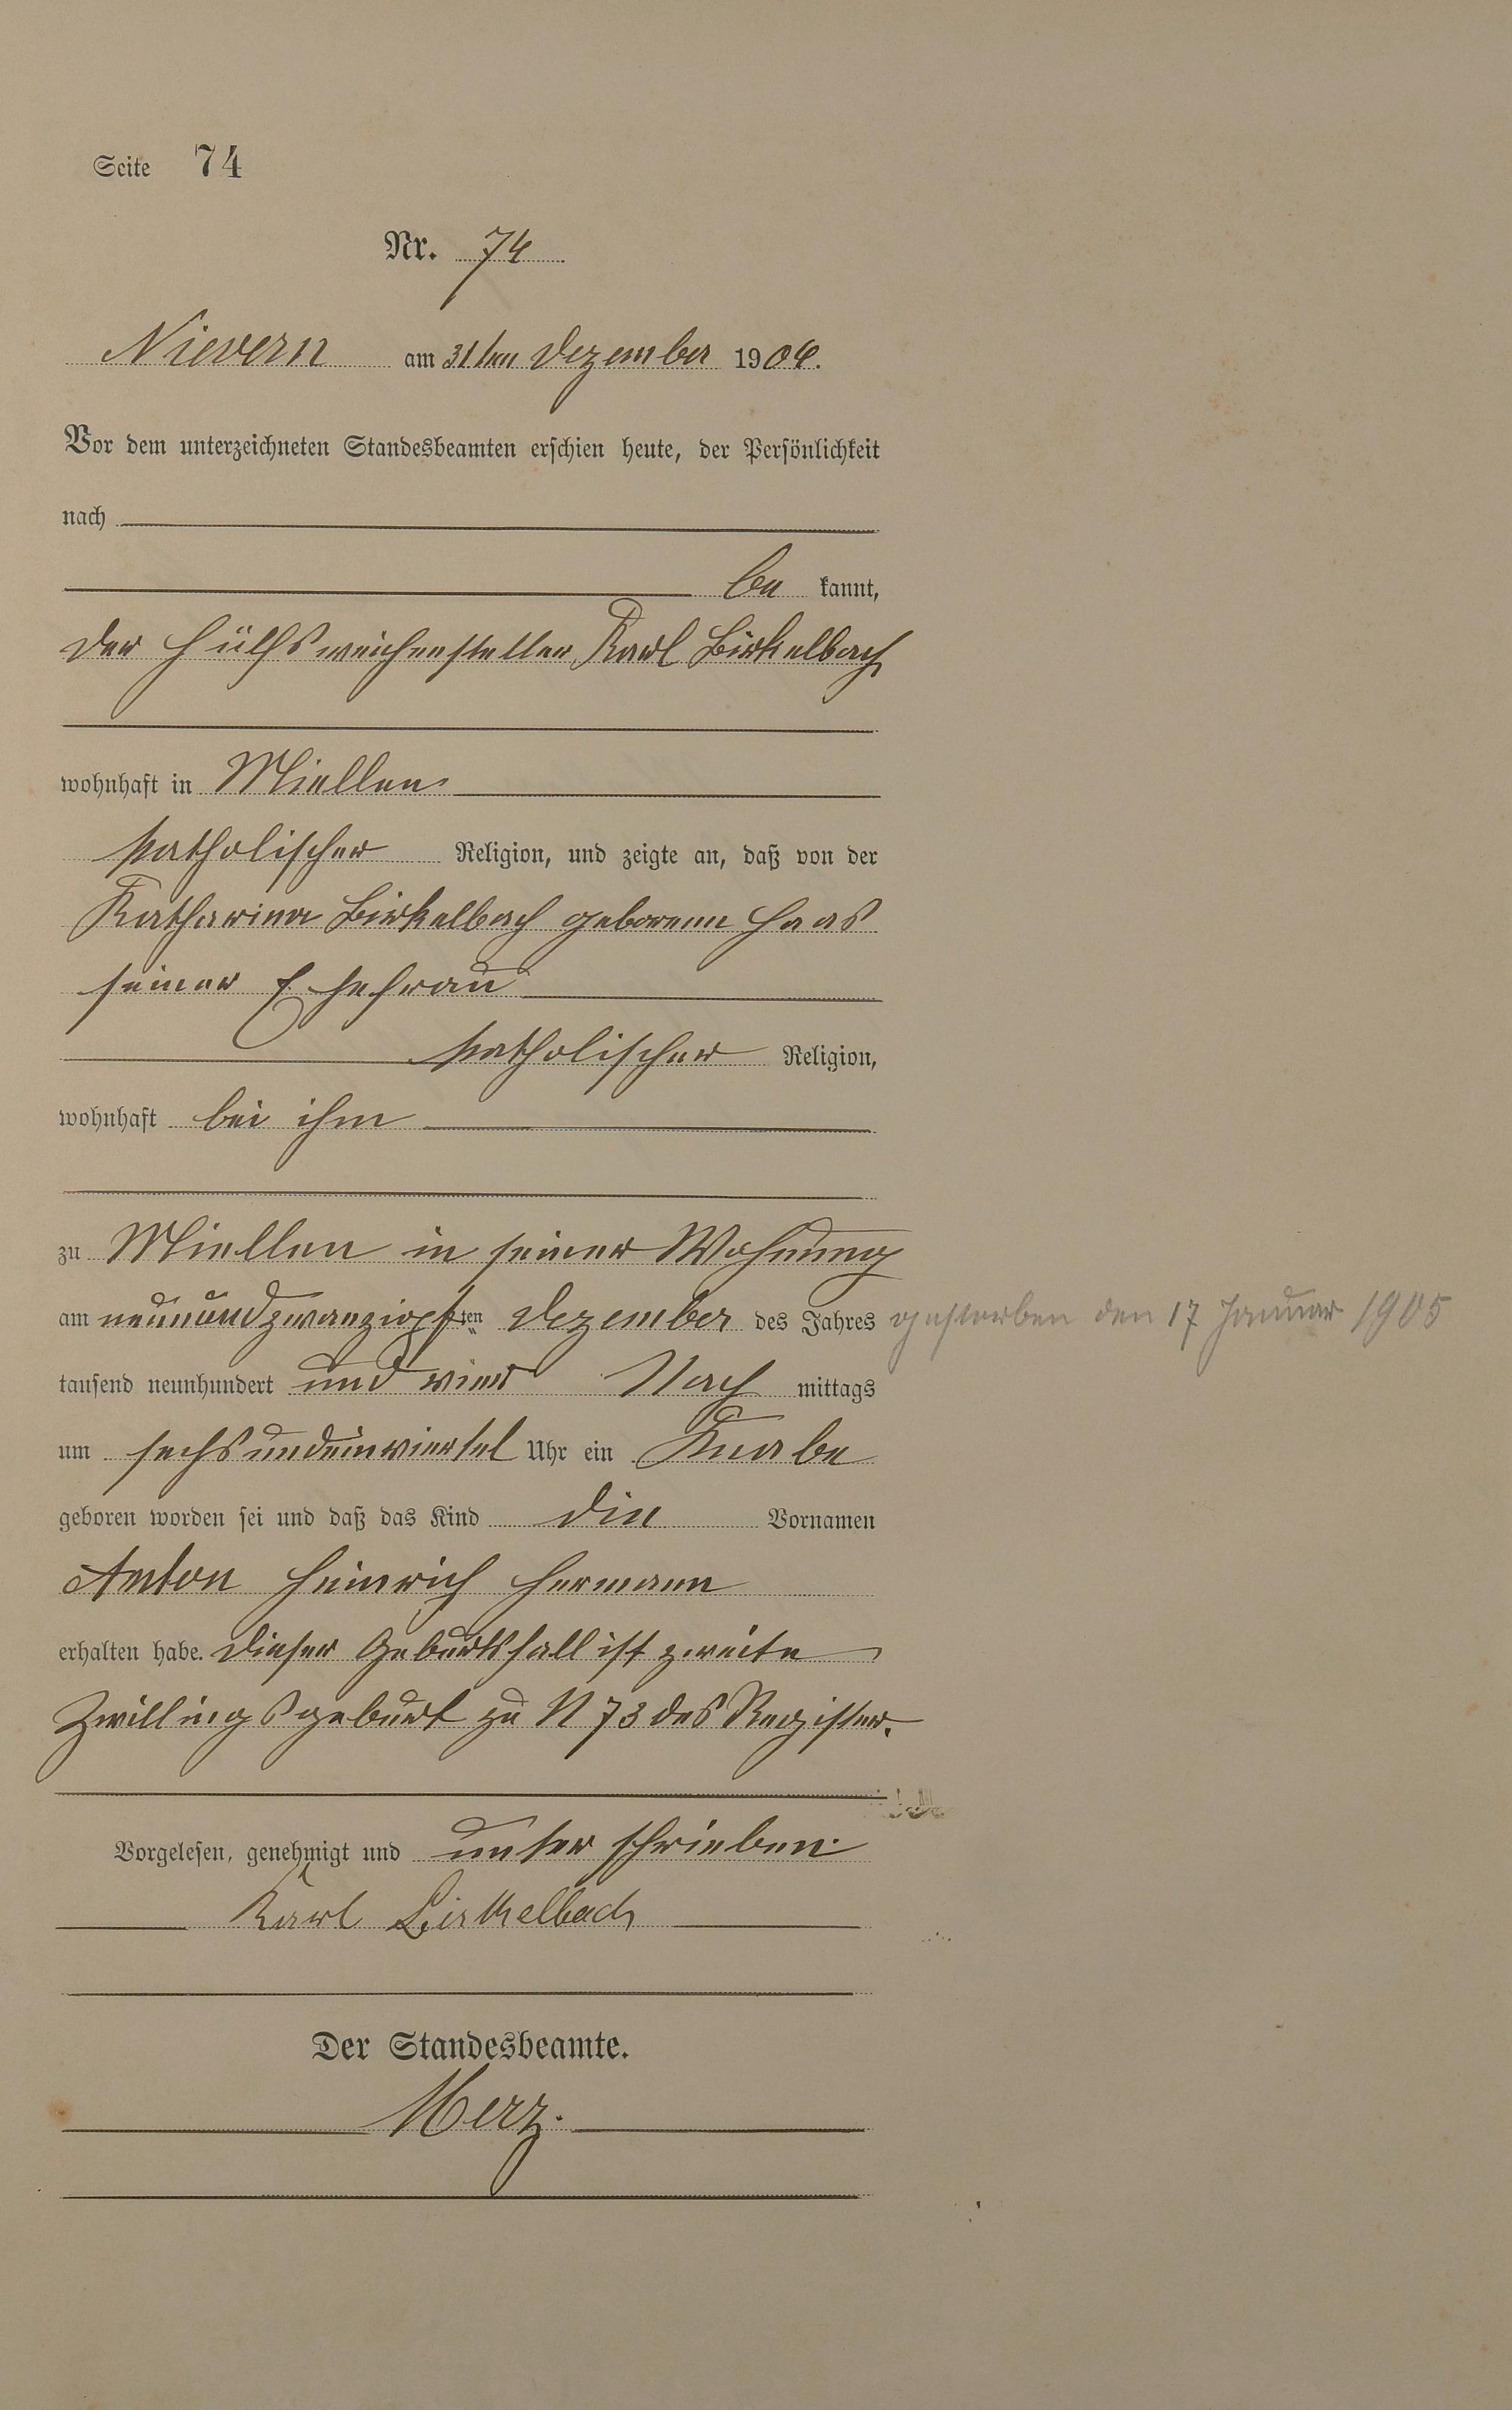 Seite 74
Nr. 74
Nievern am 31ten Dezember 1904.
Vor dem unterzeichneten Standesbeamten erschien heute, der Persönlichkeit
nach
be kannt,
der Hülfsweichensteller Karl Birkelbach
wohnhaft in Miellen
katholischer Religion, und zeigte an, daß von der
Katharina Birkelbach geborene Haas
seiner Ehefrau
katholischer Religion,
wohnhaft bei ihm
zu Miellen in seiner Wohnung
am neunundzwanzigsten Dezember des Jahres gestorben den 17 Januar 1905
tausend neunhundert und vier Nach mittags
um sechsundeinviertel Uhr ein Knabe
geboren worden sei und daß das Kind die Vornamen
Anton Heinrich Hermann
erhalten habe. Dieser Geburtsfall ist zweite
Zwillingsgeburt zu N 73 des Register.
Vorgelesen, genehmigt und unterschrieben.
Karl Birkelbach
Der Standesbeamte.
Merz.